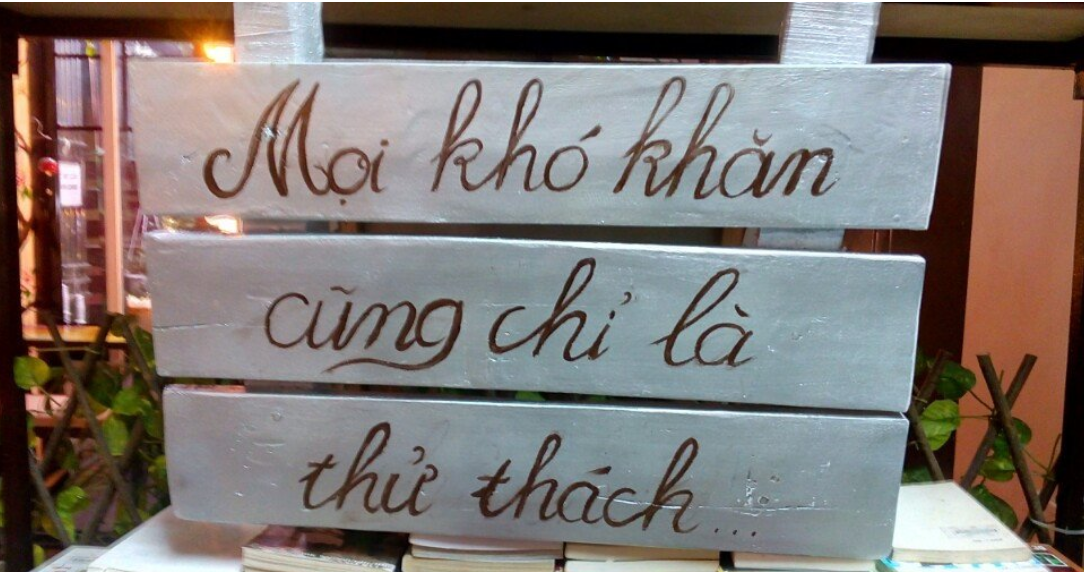 Mọi khó khăn
cũng chỉ là
thử thách...